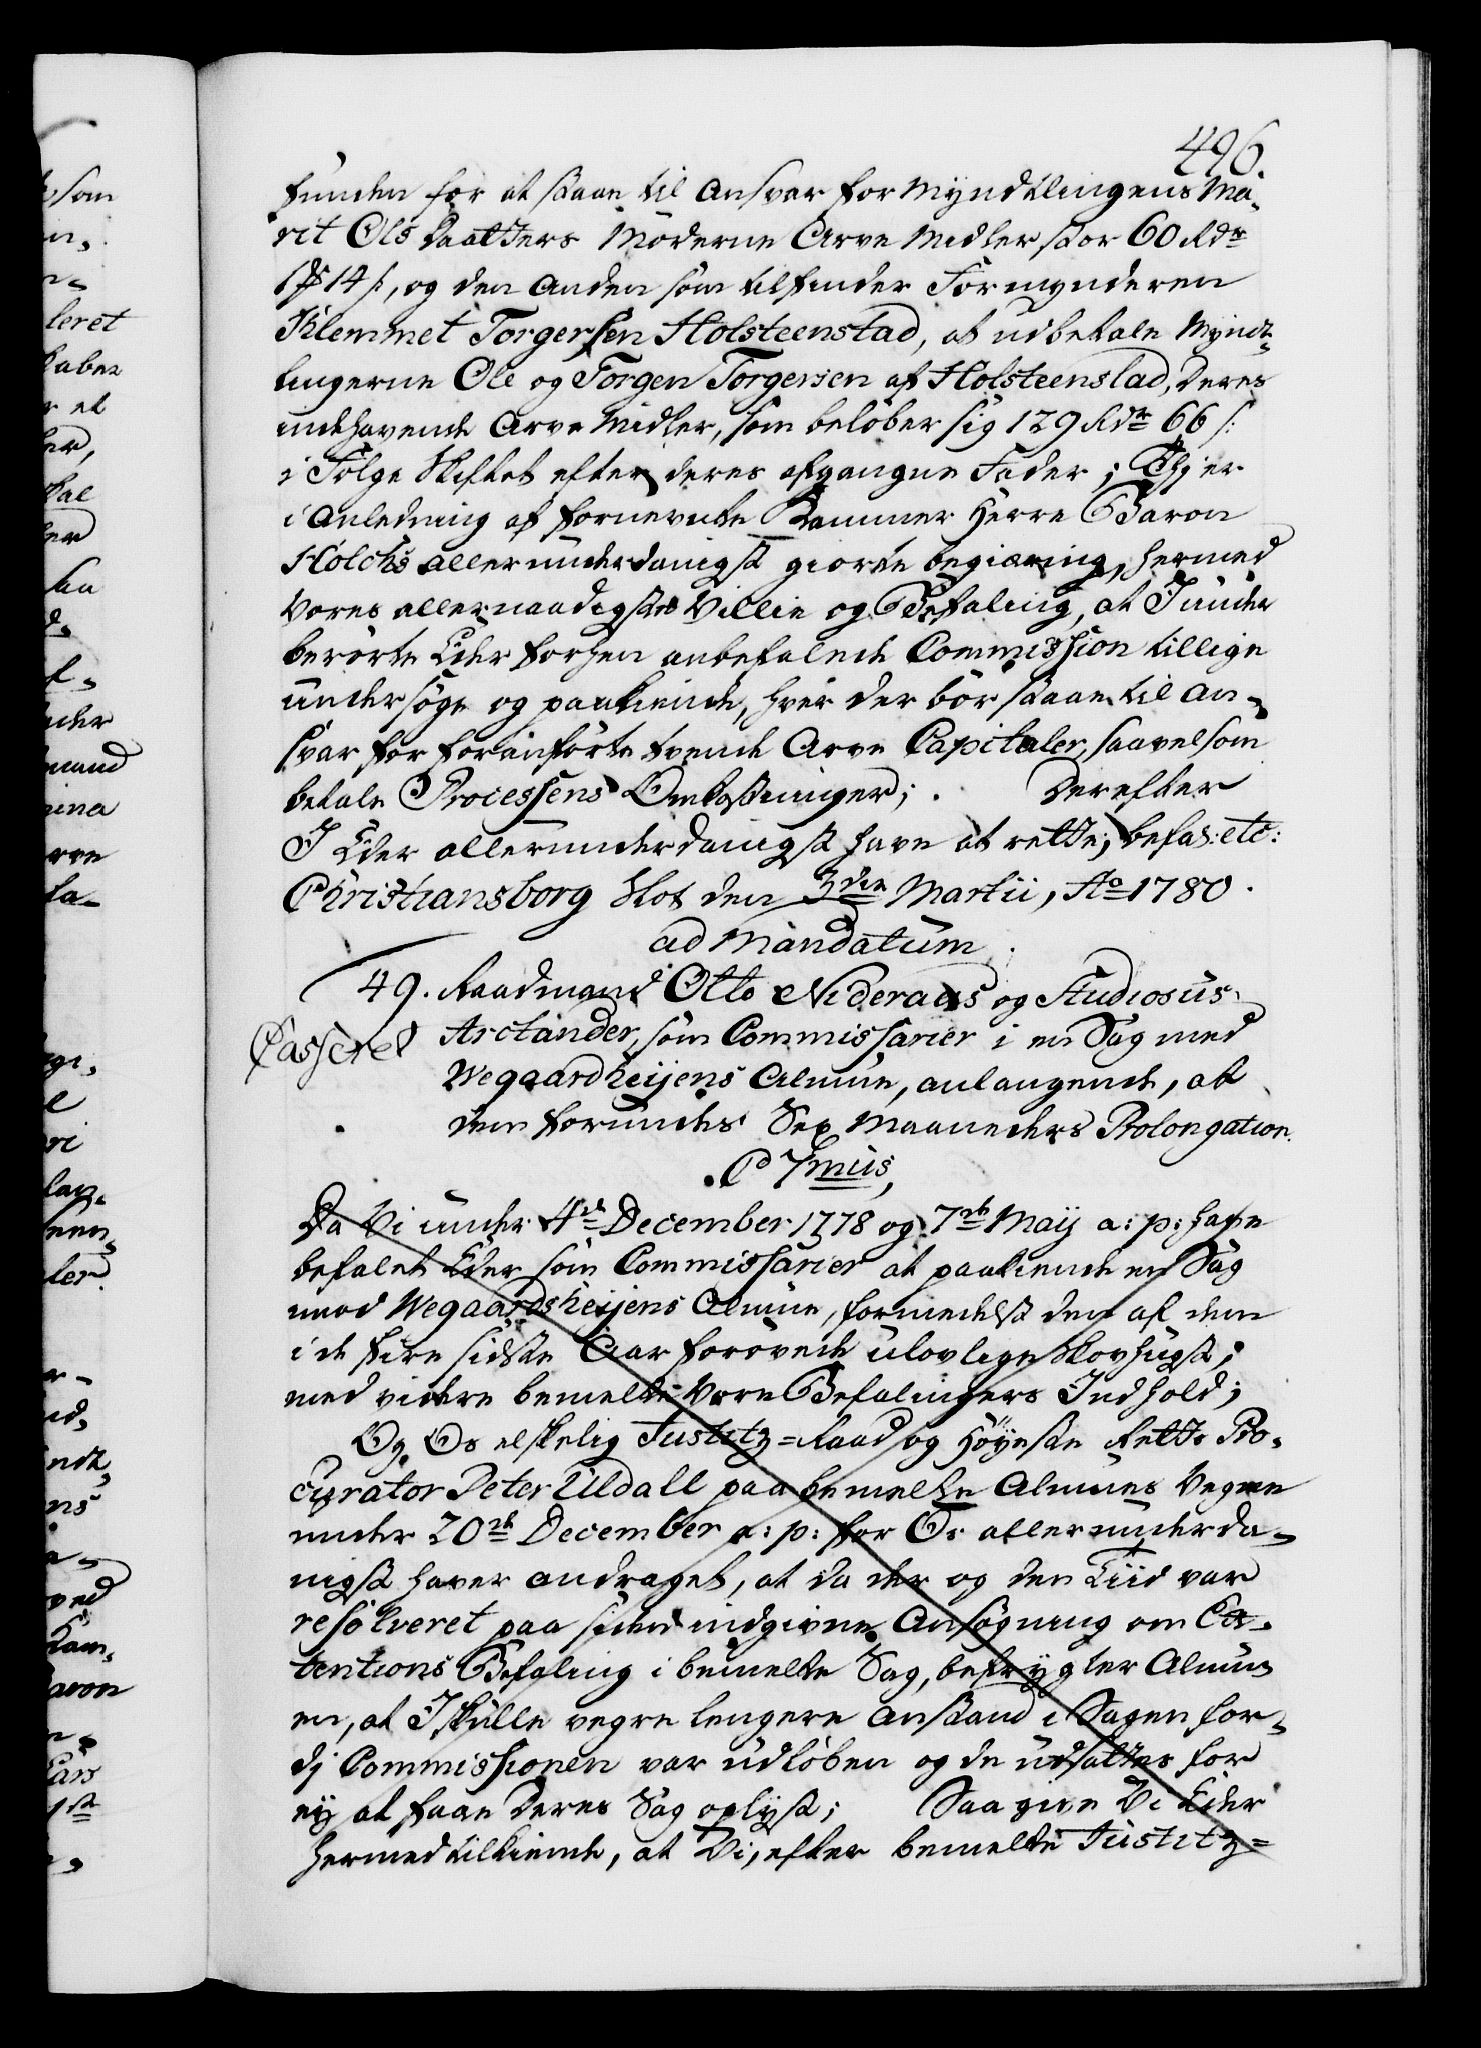 496.
funden for at staae til Ansvar for Myndtlingens Ma-
rit Ols Daatters Møderne Arve Midler stor 60 Rdr
1 # 14 s, og den Anden som tilfinder Formynderen
Klemmet Torgersen Holsteenstad, at udbetale Mynd-
lingerne Ole og Torgen Torgersen af Holsteenstad, deres
indehavende Arve Midler, som beløber sig 129 Rdr 66 s:
i Følge Skiftet efter deres afgangne Fader; Thj er
i Anledning af fornevnte Kammer Herre Baron
Holchs allerunderdanigst giorte begiæring, hermed
Vores allernaadigste Villie og Befaling, at I under
berørte Eder forhen anbefalede Commission tillige
undersøge og paakiende, hvor der bør staae til An-
svar for foranførte tvende Arve Capitaler, saavelsom
betale Processens Omkostninger; Derefter
I Eder allerunderdanigst have at rette; befal: etc:
Christiansborg Slot den 3die Martii, Ao 1780.
ad Mandatum
49. Raadmand Otto Nideraas og Studiosus
Arctander, som Commissarier i en Sag med
Wegaardheijens Almue, anlangende, at
dem forundes Sex Maaneders Prolongation.
Casseret
C 7mus,
Da Vi under 4de December 1778 og 7de Maij a: p: have
befalet Eder som Commissarier at paakiende en Sag
mod Wegaardsheijens Almue, formedelst den af dem
i de fire sidste Aar forøvede ulovlige Skovhugst;
med videre bemelte Vore Befalingers Indhold;
Og Os elskelig Justitz=Raad og Høyeste Retts Pro-
curator Peter Uldall paa bemelte Almues Vegne
under 20de December a: p: for Os allerunderda-
nigst haver andraget, at da der og den Tiid var
resolveret paa hidun indgivne Ansøgning om Ex-
tentions Befaling i bemelte Sag, befrygter Almu-
en, at I skulle vegre lengere Anstand i Sagen for-
dj Commissionen var udløben og de udsattes for
ej at faae deres Sag oplyst; Saa give Vi Eder
hermed tilkiende, at Vi, efter bemelte Justitz=